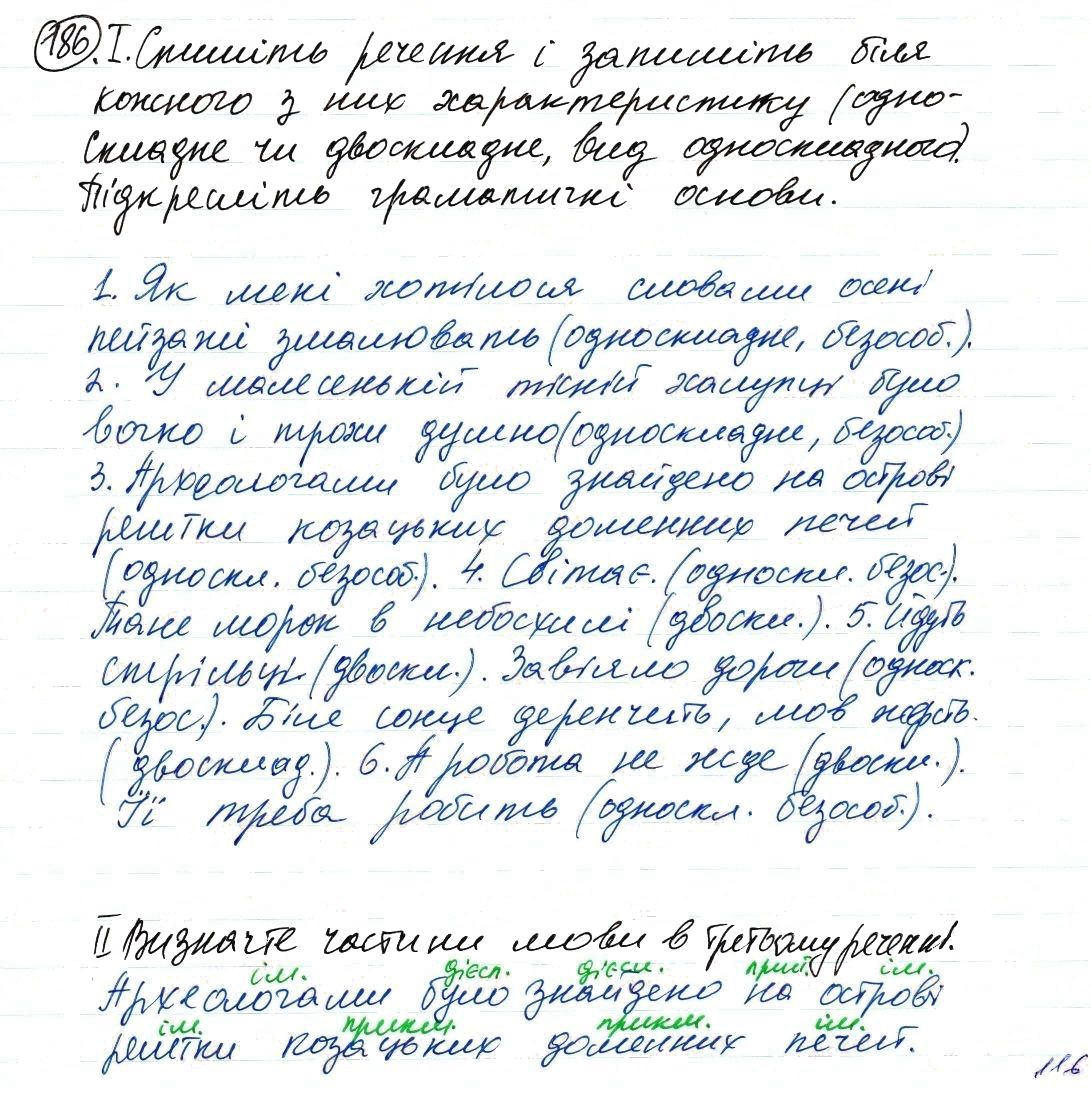 186. I. Спишіть речення і запишіть біля
кожного з них характеристику (одно-
складне чи двоскладне, вид односкладного).
Підкресліть граматичні основи.
1. Як мені хотілося словами осені
пейзажі змалювать (односкладне, безособ.).
2. У малесенькій тісній халупці було
вогко і трохи душно (односкладне, безособ.)
3. Археологами було знайдено на острові
рештки козацьких доменних печей
(односкл. безособ.). 4. Світає. (односкл. безос.).
Тане морок в небосхилі (двоскл.). 5. Йдуть
стрільці. (двоскл.). Завіяло дороги (односк.
безос.). Біле сонце деренчить, мов жерсть.
(двосклад.). 6. А робота не жде (двоскл.).
Її треба робить (односкл. безособ.).
II Визначте частини мови в третьому реченні.
ім. дієсл. дієсл. прий. ім.
Археологами було знайдено на острові
ім. прикм. прикм. ім.
рештки козацьких доменних печей.
116